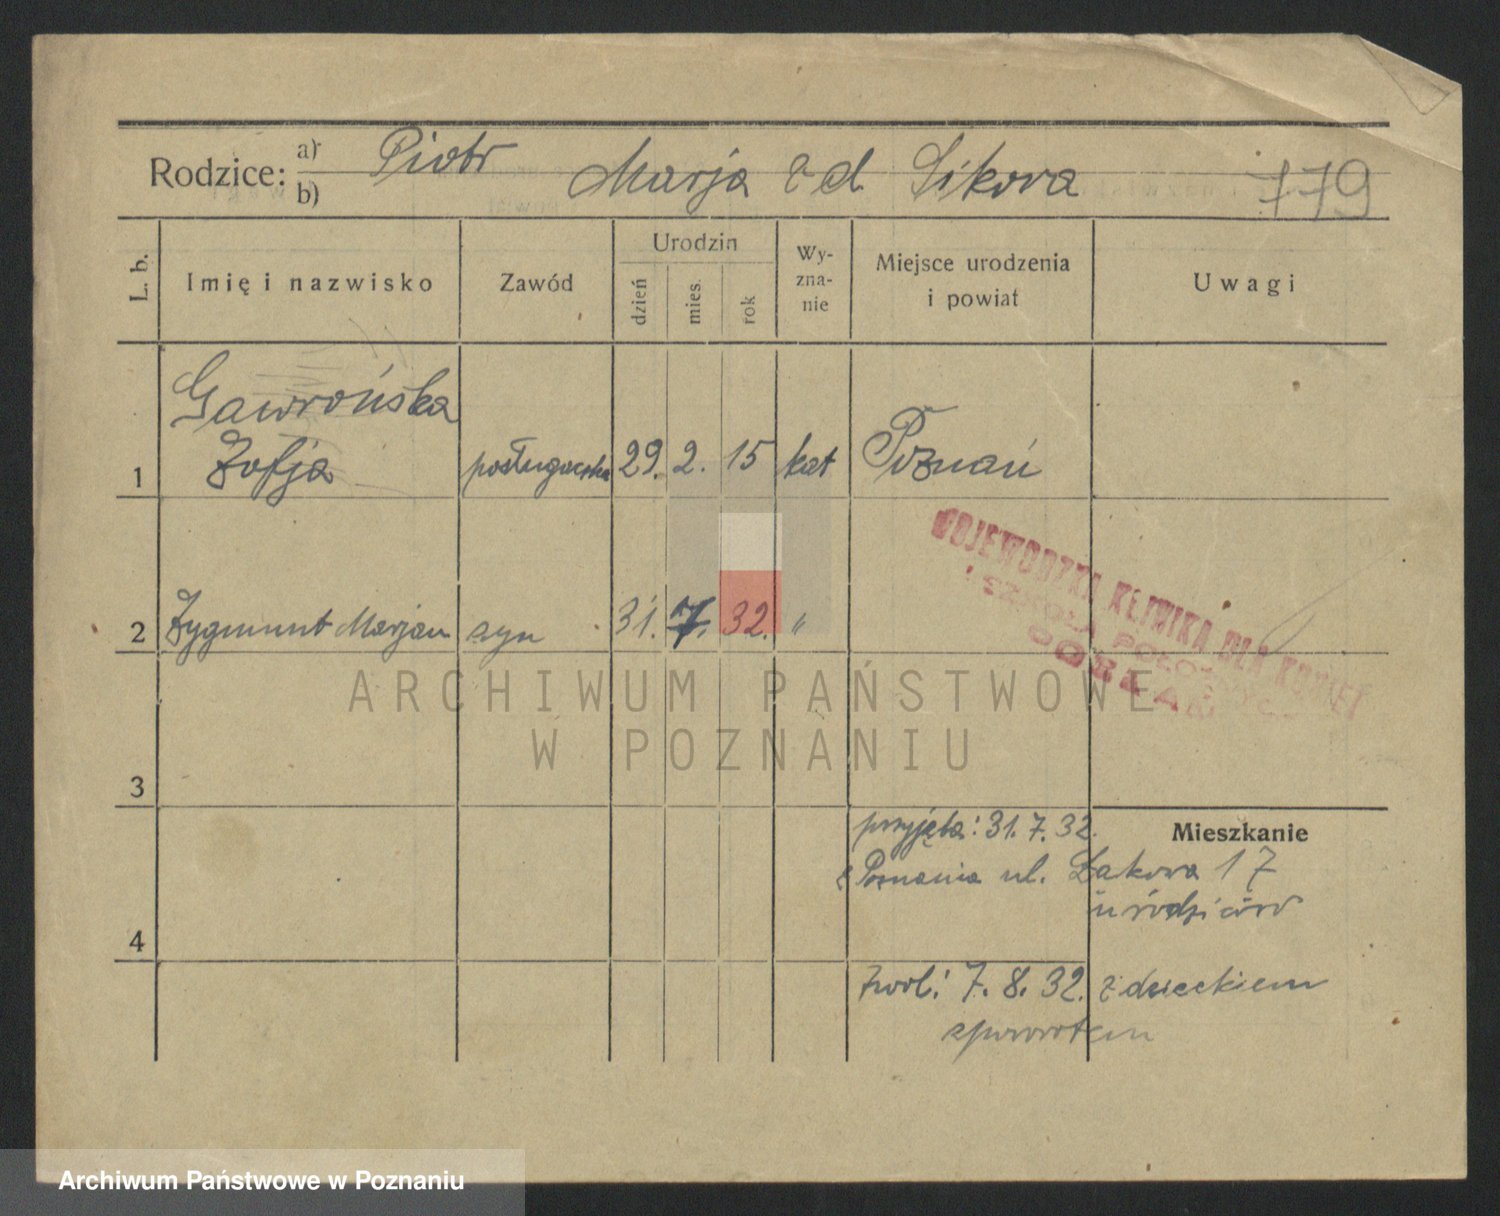 Rodzice: a) Piotr
b) Marja z d. Sikora 779
L. b. Imię i nazwisko Zawód Urodzin dzień mies. rok Wy-zna-nie Miejsce urodzenia i powiat Uwagi
1 Gawrońska Zofja posługaczka 29. 2. 15 kat Poznań
WOJEWÓDZKA KLINIKA DLA KOBIET
I SZKOŁA POŁOŻNYCH
2 Zygmunt Marjan syn 31. 7. 32. "
ARCHIWUM PAŃSTWOWE
W POZNANIU
3
przyjęta: 31. 7. 32. Mieszkanie
z Poznania ul. Łąkowa 17
u rodziców
4
zwol: 7. 8. 32. z dzieckiem
zpowrotem
Archiwum Państwowe w Poznaniu